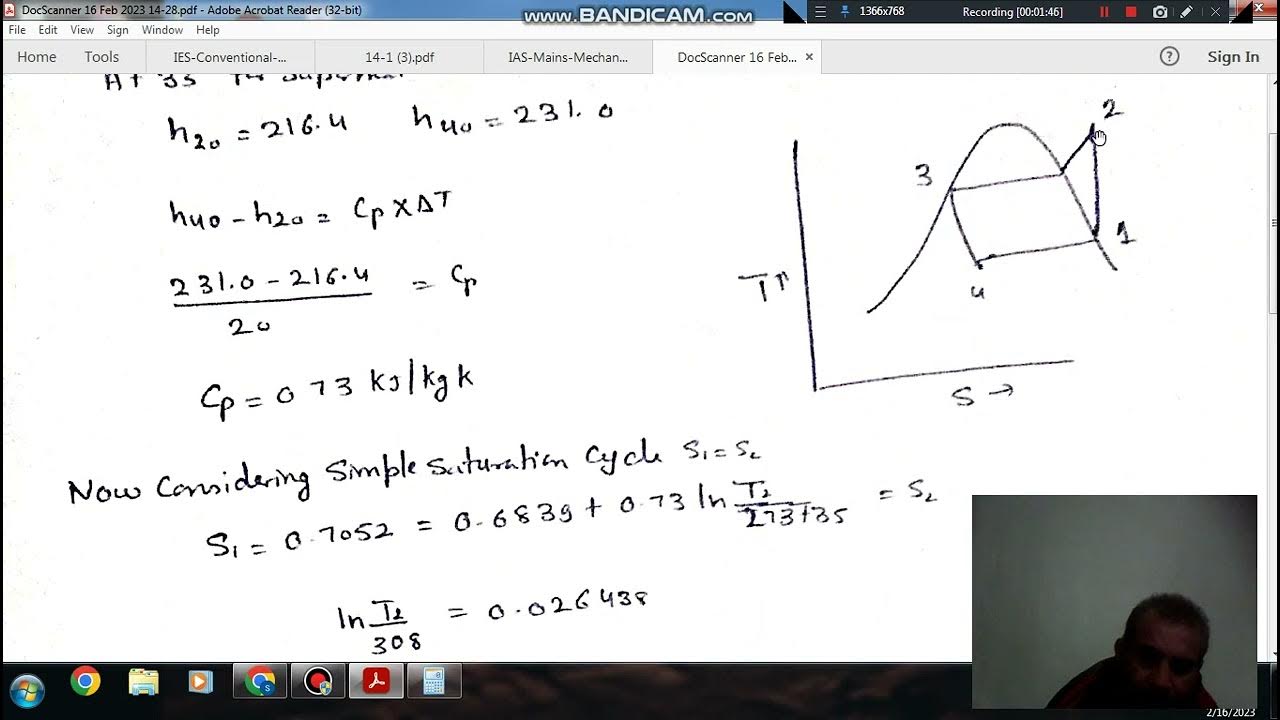 DocScanner 16 Feb 2023 14-28.pdf - Adobe Acrobat Reader (32-bit)
www.BANDICAM.com
1366x768
Recording [00:01:46]
File Edit View Sign Window Help
Home Tools
IES-Conventional-...
14-1 (3).pdf
IAS-Mains-Mechan...
DocScanner 16 Feb... ×
? Sign In
At 35
h20 = 216.4 h40 = 231.0
h40 - h20 = Cp X ΔT
231.0 - 216.4 = Cp
20
Cp = 0 73 kJ/kg k
Now Considering Simple Saturation Cycle S1 = S2
S1 = 0.7052 = 0.6839 + 0.73 ln T2 = S2
273+35
ln T2 = 0.026438
308
2
3
1
4
T↑
S →
2/16/2023